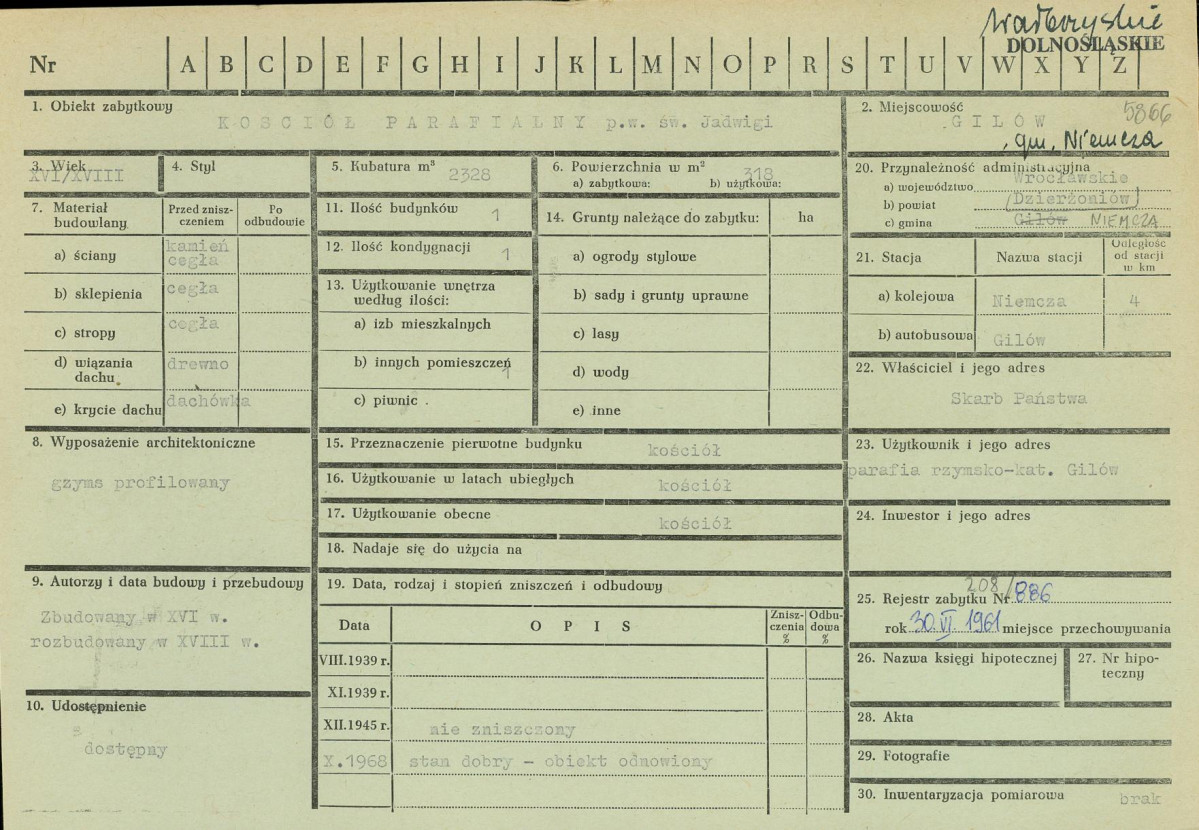 Wałbrzyskie
DOLNOŚLĄSKIE
Nr A B C D E F G H I J K L M N O P R S T U V W X Y Z
1. Obiekt zabytkowy
KOŚCIÓŁ PARAFIALNY p.w. św. Jadwigi
2. Miejscowość
5866
GILÓW
, gm. Niemcza
3. Wiek
XVI/XVIII
4. Styl
5. Kubatura m³
2328
6. Powierzchnia w m²
318
a) zabytkowa: b) użytkowa:
20. Przynależność administracyjna
a) województwo Wrocławskie
b) powiat (Dzierżoniów)
c) gmina Gilów NIEMCZA
7. Materiał budowlany
Przed zniszczeniem
Po odbudowie
a) ściany kamień cegła
b) sklepienia cegła
c) stropy cegła
d) wiązania dachu drewno
e) krycie dachu dachówka
11. Ilość budynków 1
12. Ilość kondygnacji 1
13. Użytkowanie wnętrza według ilości:
a) izb mieszkalnych
b) innych pomieszczeń 1
c) piwnic
14. Grunty należące do zabytku: ha
a) ogrody stylowe
b) sady i grunty uprawne
c) lasy
d) wody
e) inne
21. Stacja
Nazwa stacji
Odległość od stacji w km
a) kolejowa Niemcza 4
b) autobusowa Gilów
22. Właściciel i jego adres
Skarb Państwa
8. Wyposażenie architektoniczne
gzyms profilowany
15. Przeznaczenie pierwotne budynku kościół
16. Użytkowanie w latach ubiegłych kościół
17. Użytkowanie obecne kościół
18. Nadaje się do użycia na
23. Użytkownik i jego adres
parafia rzymsko-kat. Gilów
24. Inwestor i jego adres
9. Autorzy i data budowy i przebudowy
Zbudowany w XVI w.
rozbudowany w XVIII w.
10. Udostępnienie
dostępny
19. Data, rodzaj i stopień zniszczeń i odbudowy
Data
OPIS
Zniszczenia %
Odbudowa %
VIII.1939 r.
XI.1939 r.
XII.1945 r. nie zniszczony
X.1968 stan dobry - obiekt odnowiony
25. Rejestr zabytku Nr 208/886
rok 30 VI 1961 miejsce przechowywania
26. Nazwa księgi hipotecznej
27. Nr hipoteczny
28. Akta
29. Fotografie
30. Inwentaryzacja pomiarowa brak